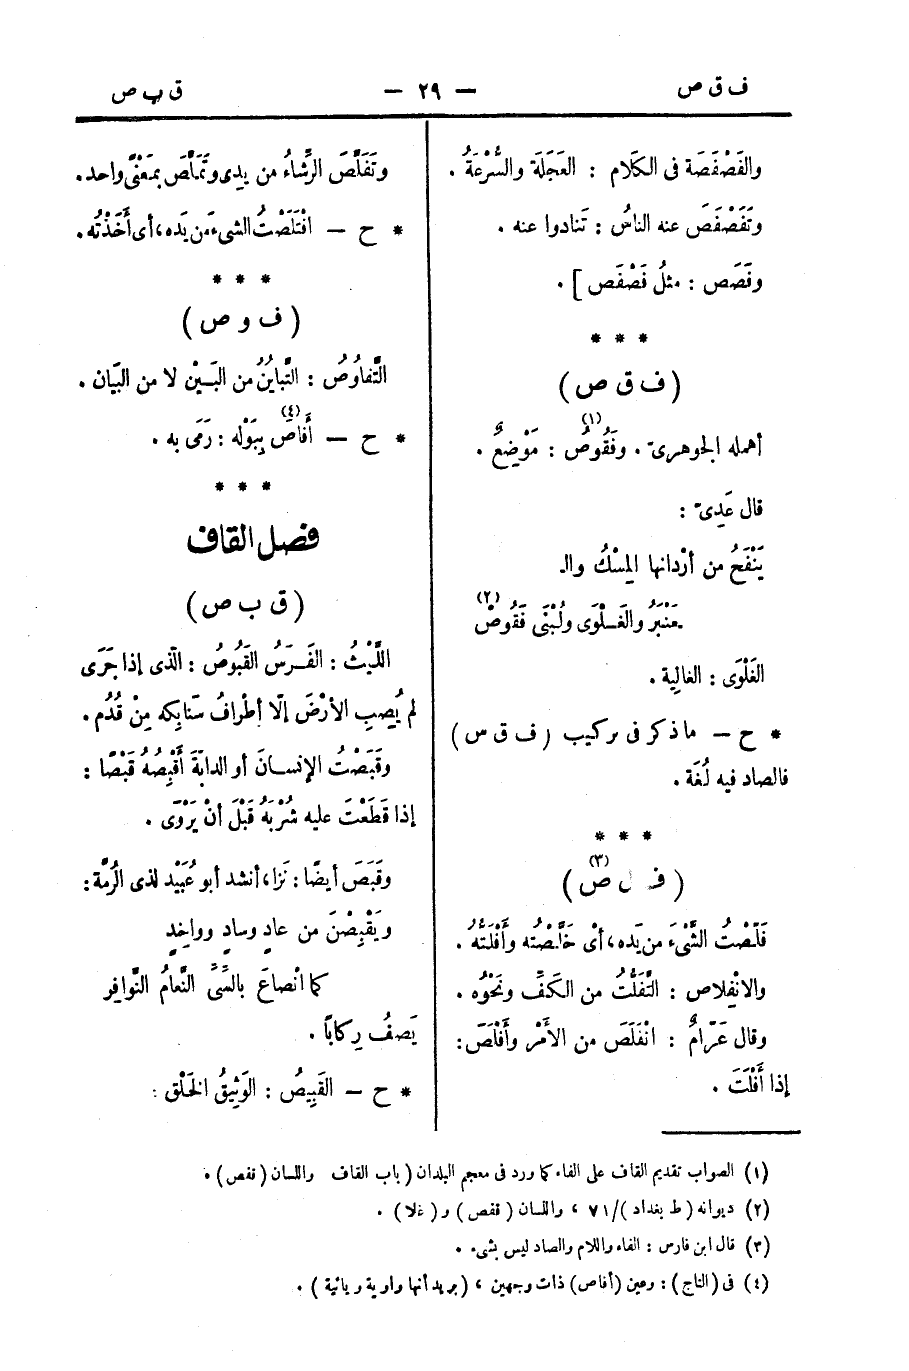 ف ق ص — ٢٩ — ق ب ص
والفَصْفَصَة فى الكَلَام : العَجَلَة والسُّرْعَةُ .
وتَفَصْفَصَ عنه الناسُ : تَنادوا عنه .
وفَصَص : مثلُ فَصْفَص ] .
* * *
( ف ق ص )
أهمله الجوهرىّ . وفَقُوصٌ (١) : مَوْضِعٌ .
قال عَدِىّ :
يَنْفَحُ من أرْدانها المِسْكُ والـ
ـعَنْبَرُ والغَــلْوَى ولُبْنَى فَقُوصْ (٢)
الغَلْوَى : الغالِية .
* ح – ما ذكر فى تركيب ( ف ق س )
فالصاد فيه لُغَة .
* * *
( ف ل ص ) (٣)
فَلَّصْتُ الشَّىْءَ من يَده ، أىْ خَلَّصْته وأَفْلَتُّه .
والانْفلاص : التَّفَلُّتُ من الكَفِّ ونَحْوُه .
وقال عَرَّامٌ : انْفَلَصَ من الأَمْر وأَفْلَصَ :
إذا أَفْلَتَ .
وتَفَلَّصَ الرِّشاءُ من يدِى وتَمَلَّصَ بمَعْنًى واحد .
* ح – افْتَلَصْتُ الشىءَ من يَده ، أى أَخَذْتُه .
* * *
( ف و ص )
التَّفاوُصُ : التَّبايُنُ من البَــيْن لا من البَيان .
* ح – أَفاصَ (٤) بِبَوْله : رَمَى به .
* * *
فصل القاف
( ق ب ص )
اللَّيْثُ : الفَــرَسُ القَبُوصُ : الّذى إذا جَرَى
لم يُصِبِ الأرْضَ إلّا أطْرافُ سَنابِكه مِنْ قُدُم .
وقَبَصْتُ الإنسـانَ أو الدابّةَ أَقْبِصُهُ قَبْصًا :
إذا قَطَعْتَ عليه شُرْبَهُ قَبْلَ أنْ يَرْوَى .
وقَبَصَ أيضًا : نَزا ، أنشد أبو عُبَيْد لذى الرُمَّة :
ويَقْبِصْنَ من عادٍ وسادٍ وواخِدٍ
كما انْصاعَ بالسِّىِّ النَّعامُ النَّوافِر
يَصفُ رِكابًا .
* ح – القَبِيصُ : الوَثِيقُ الخَلْق :
(١) الصواب تقديم القاف على الفاء كما ورد فى معجم البلدان ( باب القاف واللسان ( قفص ) .
(٢) ديوانه ( ط بغداد )/ ٧١ ، واللسان ( قفص ) و ( غلا ) .
(٣) قال ابن فارس : الفاء واللام والصاد ليس بشىء .
(٤) فى ( التاج ) : وعين (أفاص) ذات وجهين ، ( يريد أنها واوية ويائية ) .